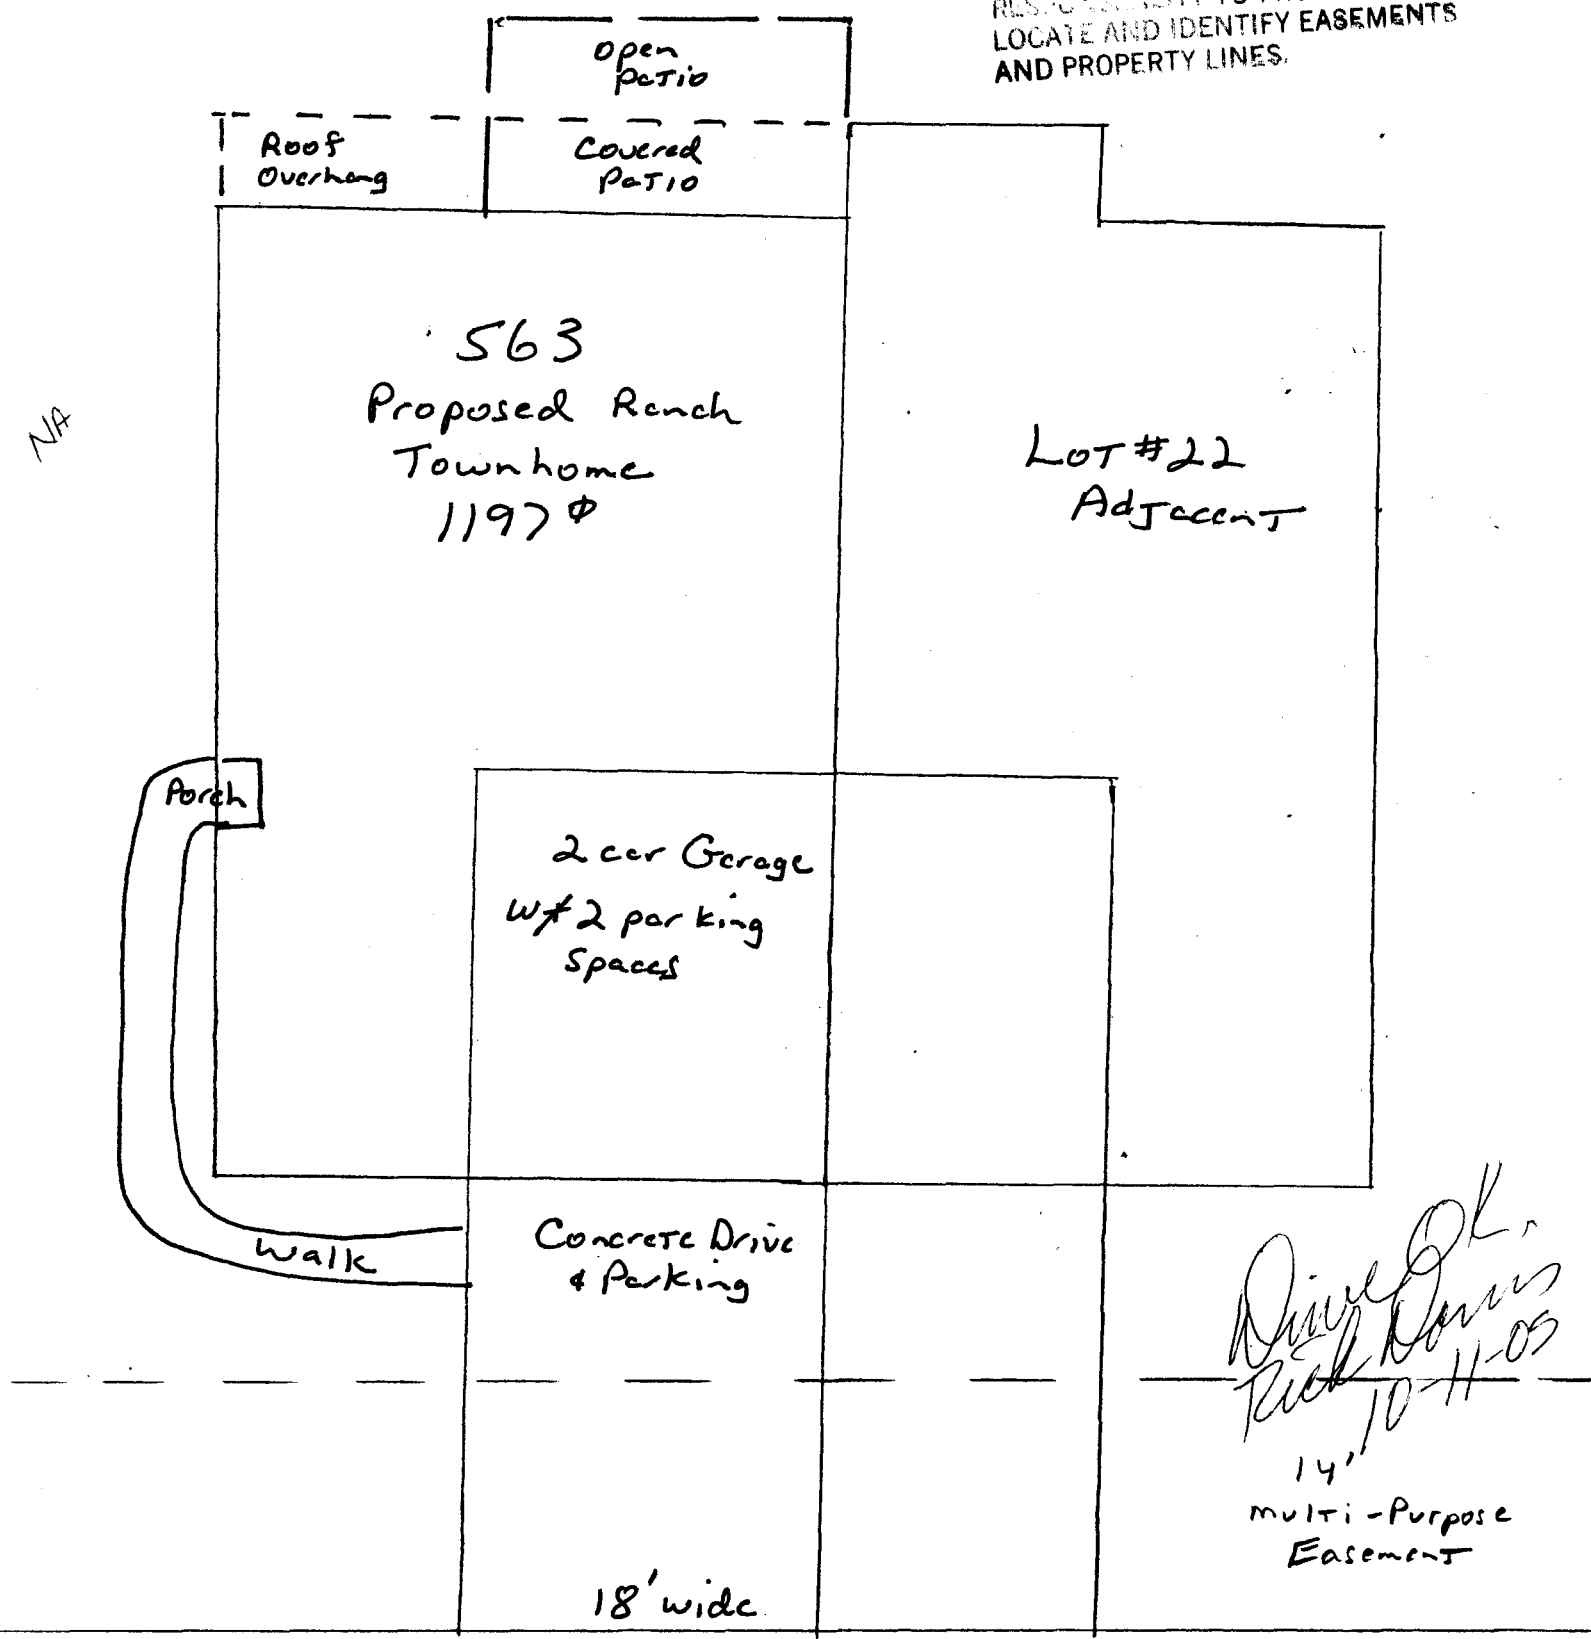 LOCATE AND IDENTIFY EASEMENTS
AND PROPERTY LINES.
Open
Patio
Roof
Overhang
Covered
Patio
563
Proposed Ranch
Townhome
1197⌀
NA
Lot #22
Adjacent
Porch
2 car Garage
W/ 2 parking
Spaces
Walk
Concrete Drive
& Parking
Drive OK.
Rick Dorris
10-11-05
14'
Multi-Purpose
Easement
18' wide